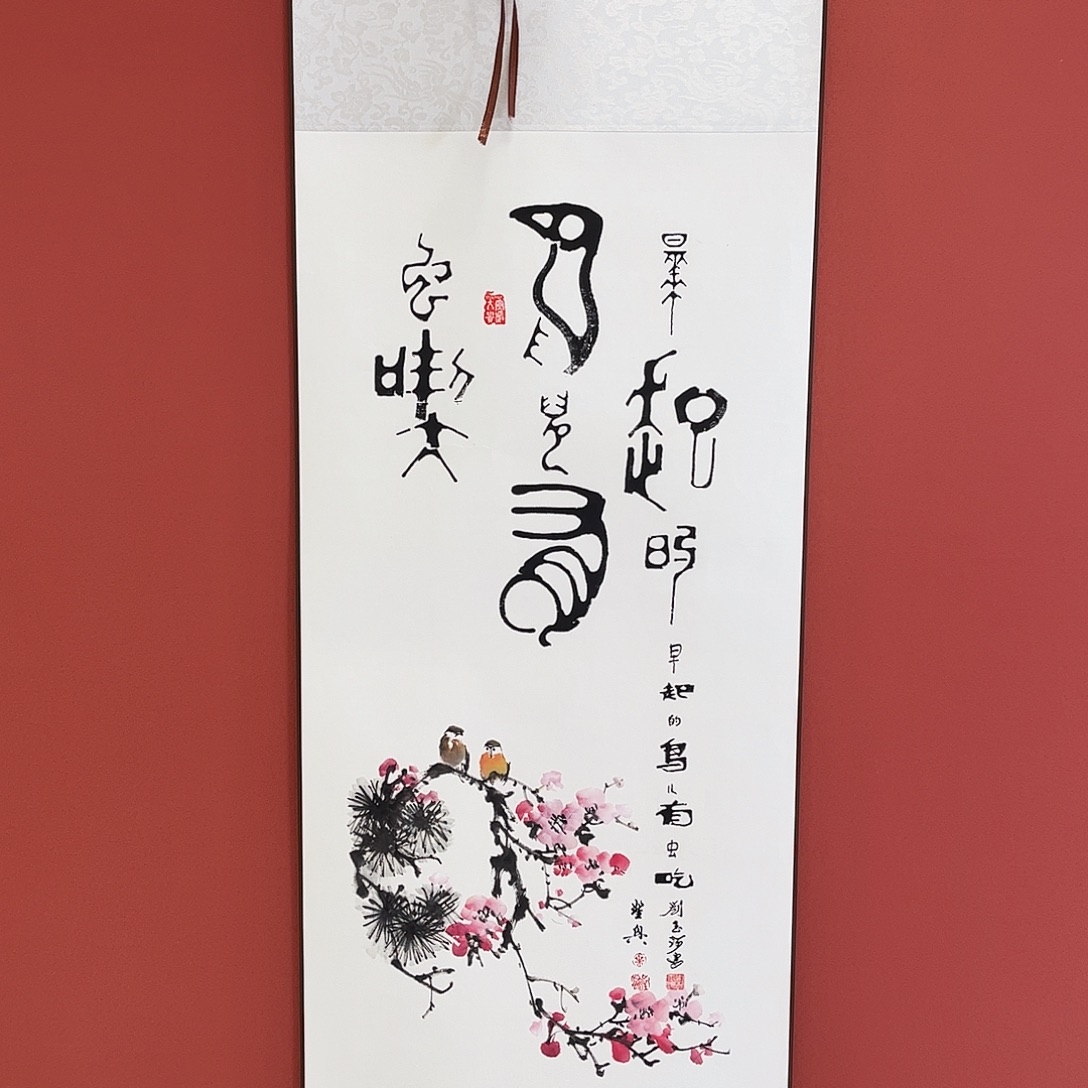 早起的
鸟儿有
虫吃
早起的鸟儿有虫吃